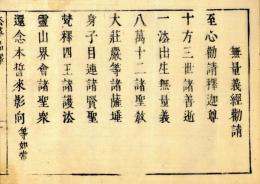 無量義經勸請
至心勸請釋迦尊
十方三世諸善逝
一法出生無量義
八萬十二諸聖教
大莊嚴等諸薩埵
身子目連諸賢聖
梵釋四王諸護法
靈山界會諸聖衆
還念本誓來影向 等如常